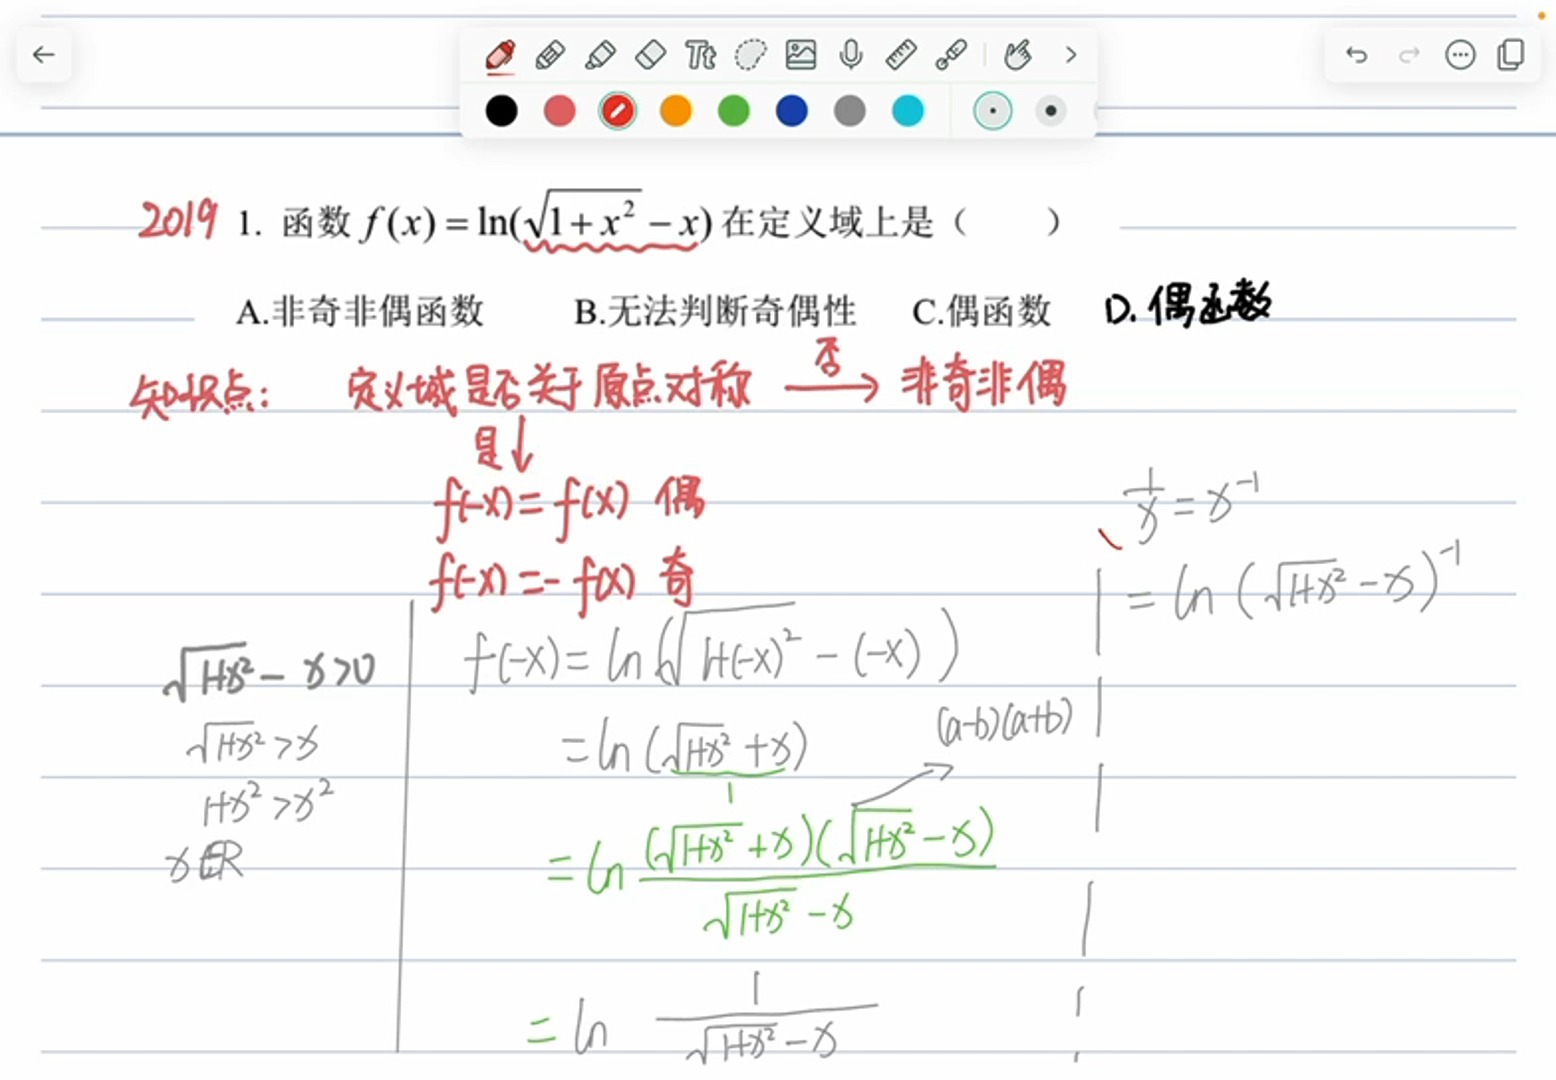 Tt
2019 1. 函数 f(x) = ln(√(1+x²) − x) 在定义域上是（ ）
A.非奇非偶函数 B.无法判断奇偶性 C.偶函数 D.偶函数
知识点: 定义域是否关于原点对称 否→ 非奇非偶
是↓
f(-x) = f(x) 偶
f(-x) = -f(x) 奇
√(1+x²) - x>0
√(1+x²) > x
1+x² > x²
x∈R
f(-x) = ln(√(1+(-x)²) - (-x))
= ln(√(1+x²) + x)
1
(a-b)(a+b)
= ln ((√(1+x²) + x)(√(1+x²) - x))/(√(1+x²) - x)
= ln 1/(√(1+x²) - x)
1/x = x⁻¹
= ln (√(1+x²) - x)⁻¹